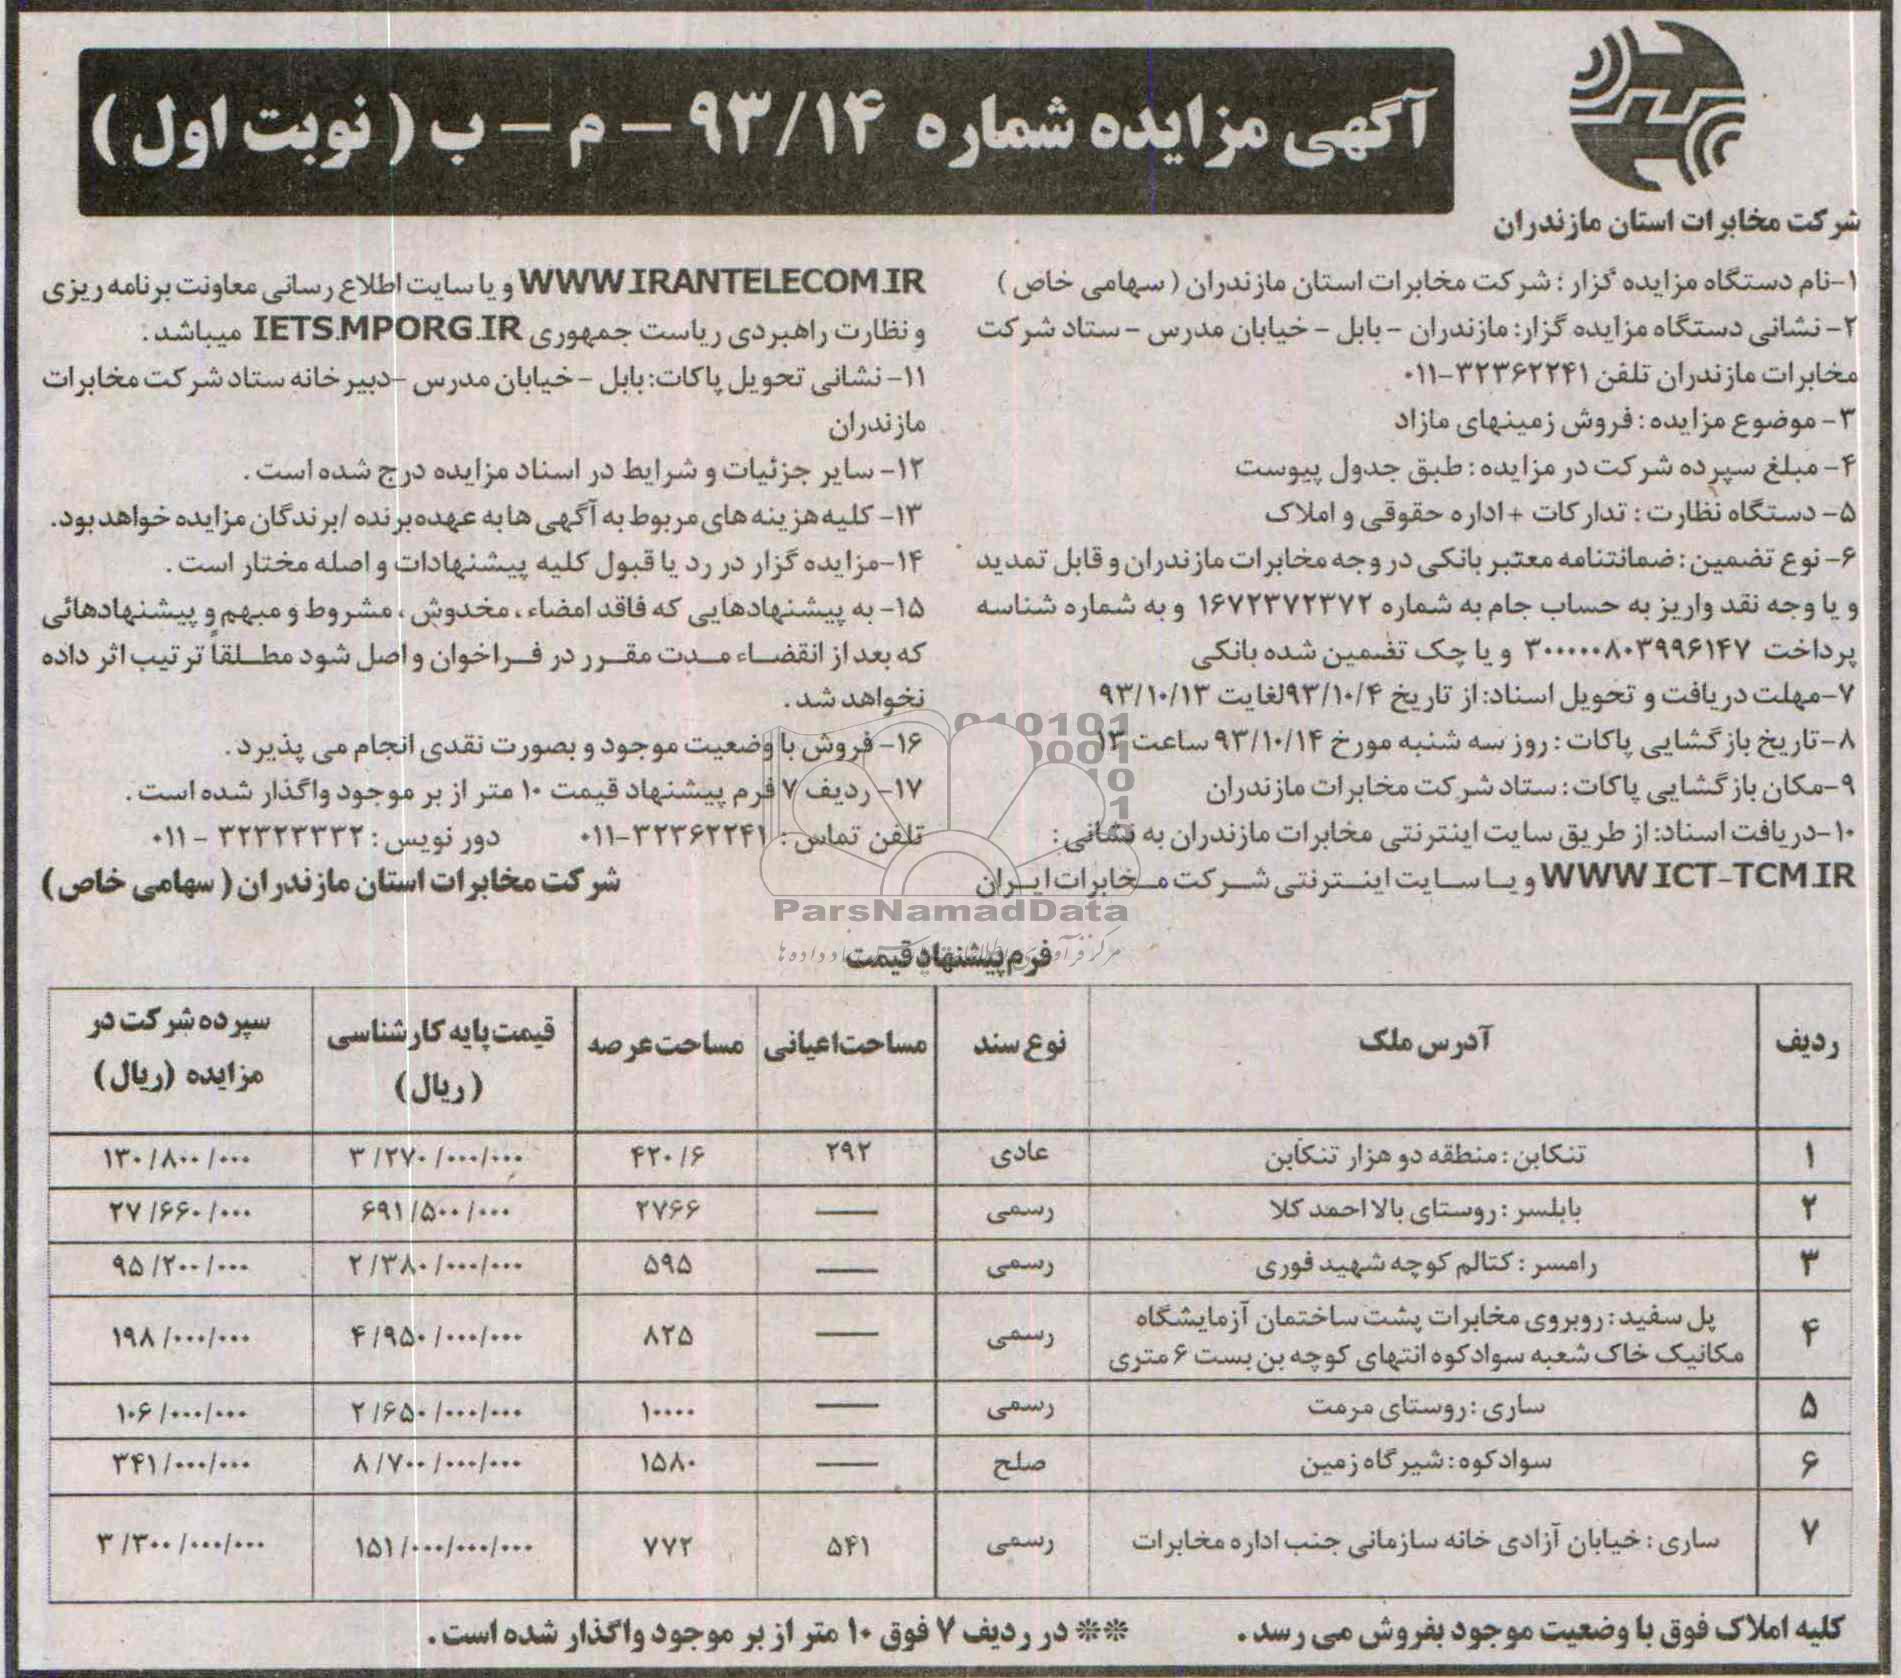 آگهی مزایده شماره ۹۳/۱۴ – م – ب ( نوبت اول )
شرکت مخابرات استان مازندران
۱-نام دستگاه مزایده گزار : شرکت مخابرات استان مازندران ( سهامی خاص )
۲- نشانی دستگاه مزایده گزار: مازندران – بابل – خیابان مدرس – ستاد شرکت
مخابرات مازندران تلفن ۳۲۳۶۲۲۴۱-۰۱۱
۳- موضوع مزایده : فروش زمینهای مازاد
۴- مبلغ سپرده شرکت در مزایده : طبق جدول پیوست
۵- دستگاه نظارت : تدارکات + اداره حقوقی و املاک
۶- نوع تضمین : ضمانتنامه معتبر بانکی در وجه مخابرات مازندران و قابل تمدید
و یا وجه نقد واریز به حساب جام به شماره ۱۶۷۲۳۷۲۳۷۲ و به شماره شناسه
پرداخت ۳۰۰۰۰۰۸۰۳۹۹۶۱۴۷ و یا چک تضمین شده بانکی
۷-مهلت دریافت و تحویل اسناد: از تاریخ ۹۳/۱۰/۴لغایت ۹۳/۱۰/۱۳
۸-تاریخ بازگشایی پاکات : روز سه شنبه مورخ ۹۳/۱۰/۱۴ ساعت ۱۳
۹-مکان بازگشایی پاکات : ستاد شرکت مخابرات مازندران
۱۰-دریافت اسناد: از طریق سایت اینترنتی مخابرات مازندران به نشانی :
WWW.ICT-TCM.IR و یا سایت اینترنتی شرکت مخابرات ایران
WWW.IRANTELECOM.IR و یا سایت اطلاع رسانی معاونت برنامه ریزی
و نظارت راهبردی ریاست جمهوری IETS.MPORG.IR میباشد .
۱۱- نشانی تحویل پاکات: بابل – خیابان مدرس –دبیرخانه ستاد شرکت مخابرات
مازندران
۱۲- سایر جزئیات و شرایط در اسناد مزایده درج شده است .
۱۳- کلیه هزینه های مربوط به آگهی ها به عهده برنده /برندگان مزایده خواهد بود.
۱۴-مزایده گزار در رد یا قبول کلیه پیشنهادات واصله مختار است .
۱۵- به پیشنهادهایی که فاقد امضاء ، مخدوش ، مشروط و مبهم و پیشنهادهائی
که بعد از انقضاء مدت مقرر در فراخوان واصل شود مطلقاً ترتیب اثر داده
نخواهد شد .
۱۶- فروش با وضعیت موجود و بصورت نقدی انجام می پذیرد .
۱۷- ردیف ۷ فرم پیشنهاد قیمت ۱۰ متر از بر موجود واگذار شده است .
تلفن تماس : ۳۲۳۶۲۲۴۱-۰۱۱ دور نویس : ۳۲۳۲۳۳۳۲ - ۰۱۱
شرکت مخابرات استان مازندران ( سهامی خاص )
ParsNamadData
فرم پیشنهاد قیمت
ردیف آدرس ملک نوع سند مساحت اعیانی مساحت عرصه قیمت پایه کارشناسی (ریال) سپرده شرکت در مزایده (ریال)
۱ تنکابن : منطقه دو هزار تنکابن عادی ۲۹۲ ۴۲۰/۶ ۳/۲۷۰/۰۰۰/۰۰۰ ۱۳۰/۸۰۰/۰۰۰
۲ بابلسر : روستای بالا احمد کلا رسمی —— ۲۷۶۶ ۶۹۱/۵۰۰/۰۰۰ ۲۷/۶۶۰/۰۰۰
۳ رامسر : کتالم کوچه شهید فوری رسمی —— ۵۹۵ ۲/۳۸۰/۰۰۰/۰۰۰ ۹۵/۲۰۰/۰۰۰
۴ پل سفید : روبروی مخابرات پشت ساختمان آزمایشگاه مکانیک خاک شعبه سوادکوه انتهای کوچه بن بست ۶ متری رسمی —— ۸۲۵ ۴/۹۵۰/۰۰۰/۰۰۰ ۱۹۸/۰۰۰/۰۰۰
۵ ساری : روستای مرمت رسمی —— ۱۰۰۰۰ ۲/۶۵۰/۰۰۰/۰۰۰ ۱۰۶/۰۰۰/۰۰۰
۶ سوادکوه : شیرگاه زمین صلح —— ۱۵۸۰ ۸/۷۰۰/۰۰۰/۰۰۰ ۳۴۱/۰۰۰/۰۰۰
۷ ساری : خیابان آزادی خانه سازمانی جنب اداره مخابرات رسمی ۵۴۱ ۷۷۲ ۱۵۱/۰۰۰/۰۰۰/۰۰۰ ۳/۳۰۰/۰۰۰/۰۰۰
کلیه املاک فوق با وضعیت موجود بفروش می رسد . ** در ردیف ۷ فوق ۱۰ متر از بر موجود واگذار شده است .